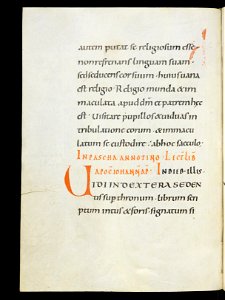 autem putat se religiosum esse
non refrenans linguam suam
sed seducens cor suum · huius uana
est religio · Religio munda & in
maculata apud dm & patrem hęc
est · Uisitare pupillos & uiduas in
tribulatione eorum · & immacu
latum se custodire · ab hoc saeculo ·
IN PASCHA ANNOTINO · LEC LIB
APOC IOHANNIS AP · IN DIEB ILLIS
UIDI IN DEXTERA SEDEN
tis sup thronum · librum scri
ptum intus & foris · signatum si